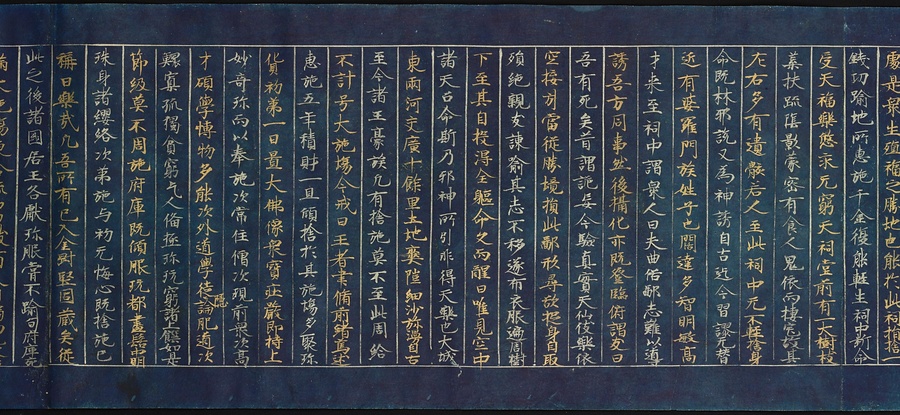 處是眾生植福之勝地也能於此祠捐捨一
錢功踰地所惠施千金復能輕生祠中斷命
受天福樂悠永无窮天祠堂前有一大樹枝
葉扶疏陰影蒙密有食人鬼依而棲宅故其
左右多有遺骸若人至此祠中无不輕捨身
命既怵邪說又為神誘自古迄今習謬无替
近有婆羅門族姓子也闊達多智明敏高
才來至祠中謂眾人曰夫曲俗鄙志難以導
誘吾方同事然後攝化亦既登臨俯謂友曰
吾有死矣昔謂詭妄今驗真實天仙伎樂依
空接引當從勝境捐此鄙形尋欲投身自取
殞絕親友諫諭其志不移遂布衣服遍周樹
下至其自投得全軀命久而醒曰唯見空中
諸天召命斯乃邪神所引非得天樂也大城
東兩河交廣十餘里土地爽塏細沙弥漫自古
至今諸王豪族凡有捨施莫不至此周給
不計号大施場今戒日王者聿脩前緒篤述
惠施五年積財一旦傾捨於其施場多聚珎
貨初第一日置大佛像眾寶莊嚴即持上
妙奇珎而以奉施次常住僧次現前眾次高
才碩學博物多能次外道學徒隱論肥遁次
鰥寡孤獨貧窮乞人俻極珎玩窮諸上饌如是
節級莫不周施府庫既傾服玩都盡髻中明
珠身諸纓絡次第施与初无悔心既捨施已
稱曰樂哉凡吾所有已入金剛堅固藏矣從
此之後諸國君王各獻珎服嘗不踰旬府庫充